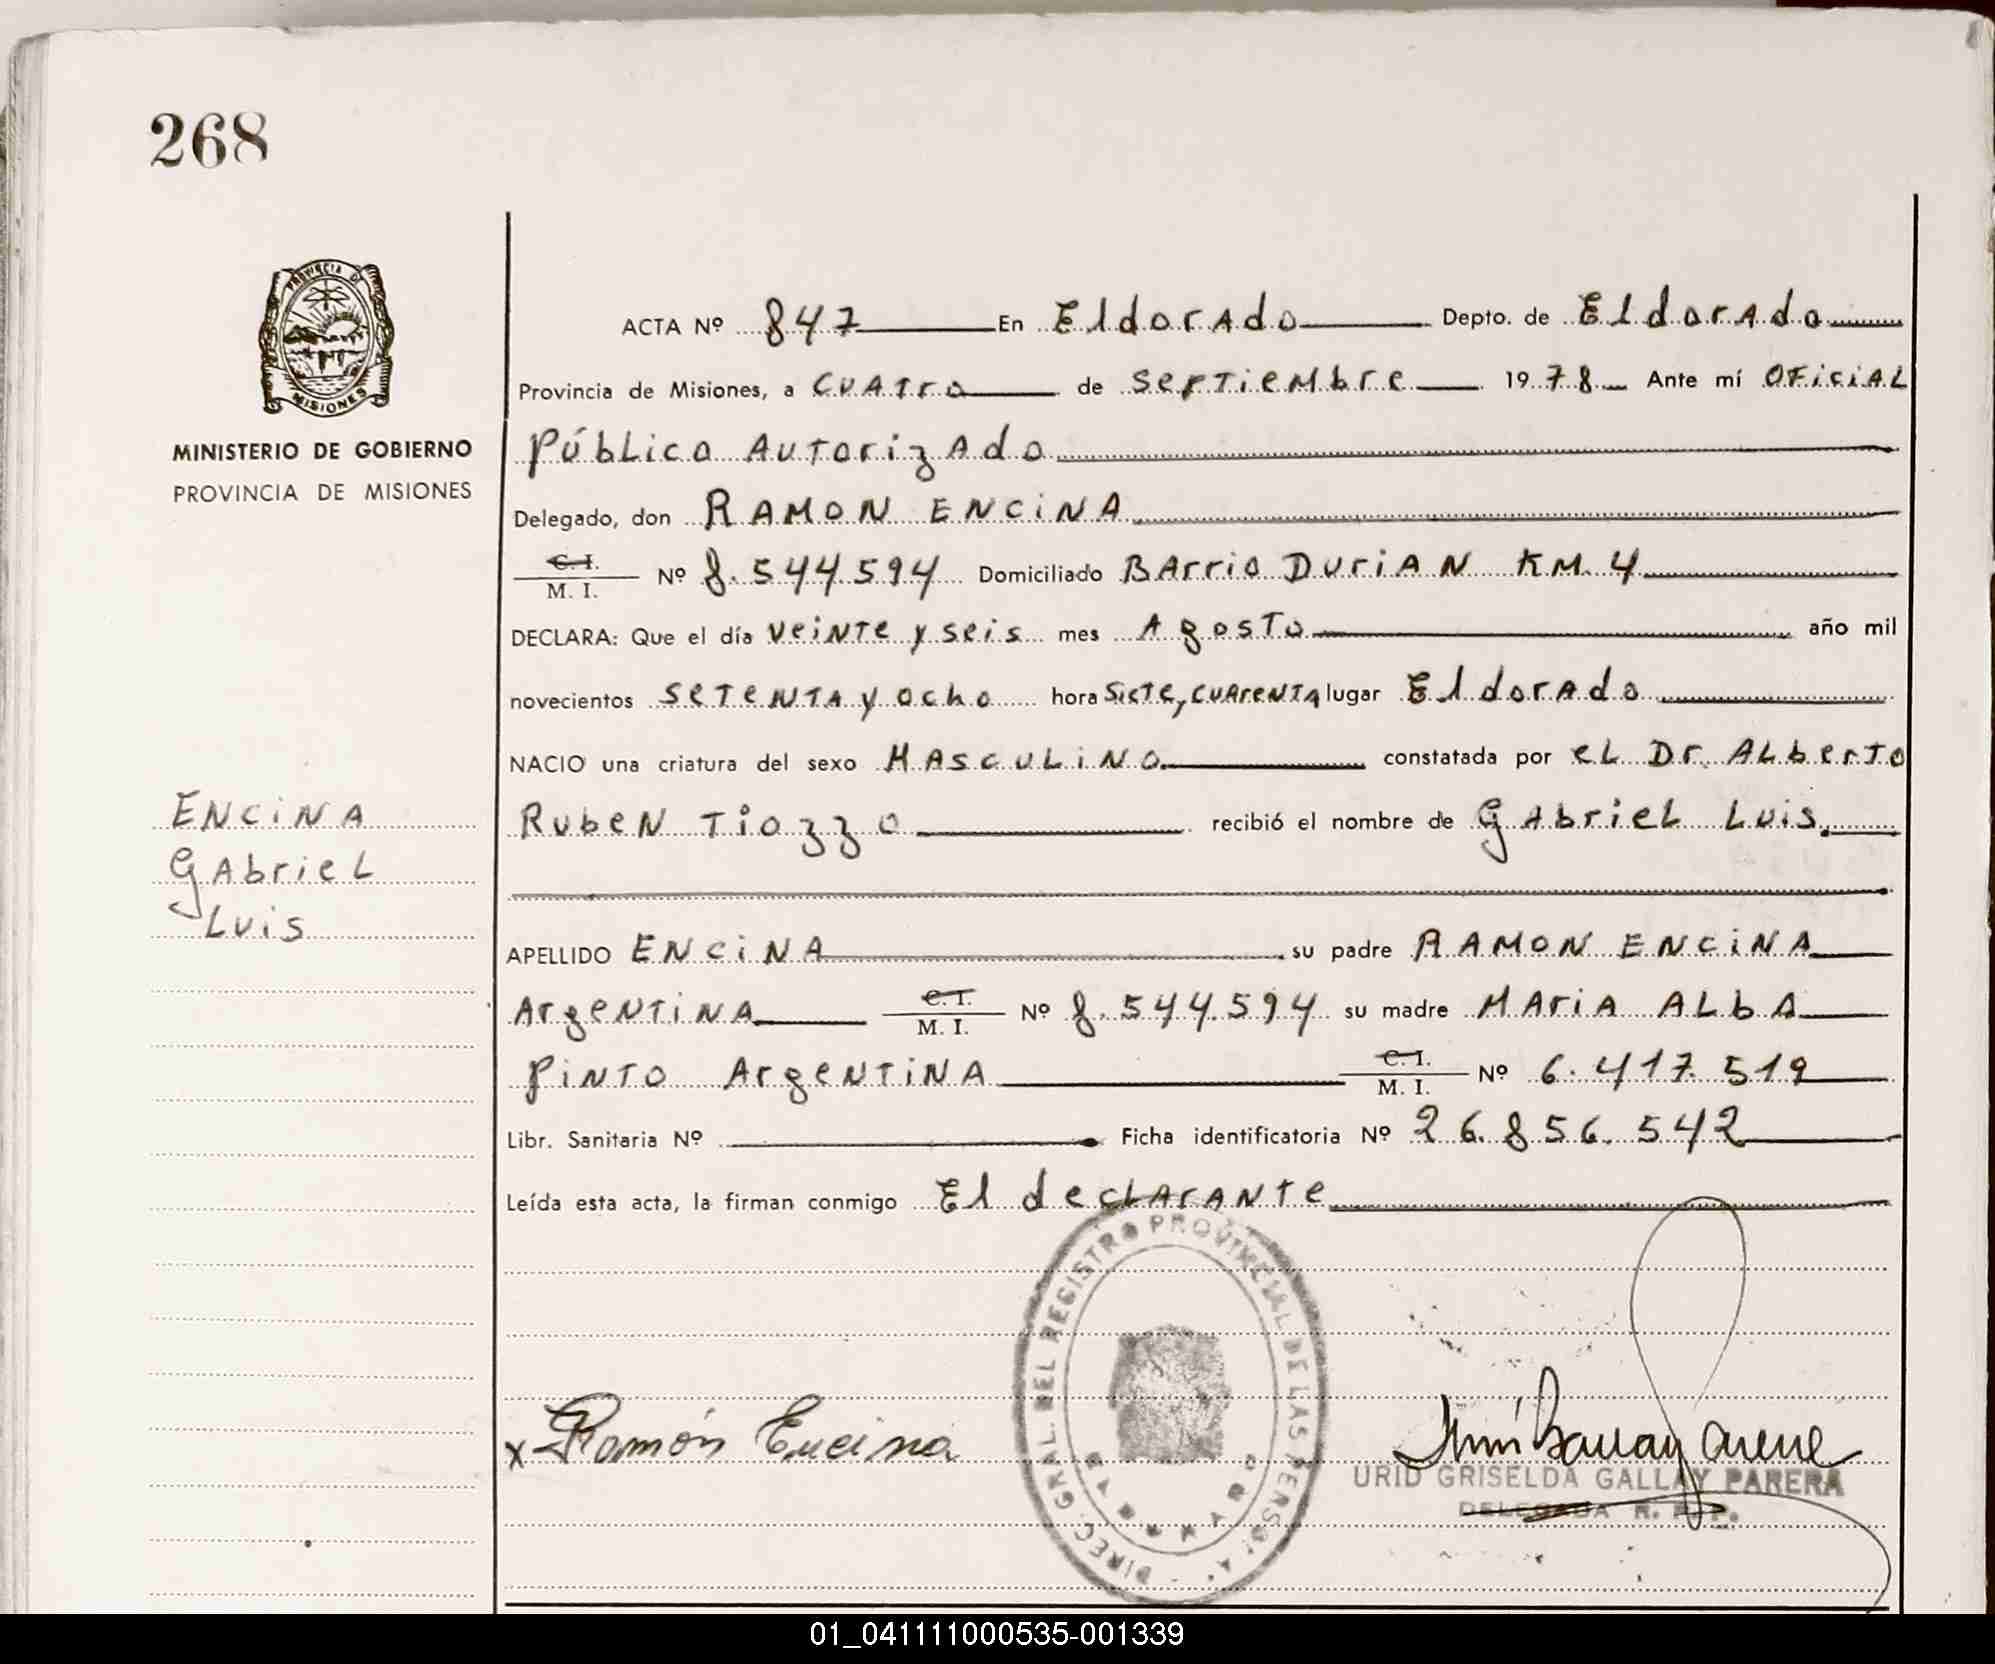 268
PROVINCIA D
MISIONES
MINISTERIO DE GOBIERNO
PROVINCIA DE MISIONES
ENCINA
GAbrieL
LUis
ACTA Nº 847 En ElDorado Depto. de ElDorado
Provincia de Misiones, a cuatro de septiembre 1978 Ante mí Oficial
Público Autorizado
Delegado, don RAMON ENCINA
C. I. / M. I. Nº 8.544.594 Domiciliado Barrio Durian KM. 4
DECLARA: Que el día veinte y seis mes Agosto año mil
novecientos setenta y ocho hora siete, cuarenta lugar Eldorado
NACIO una criatura del sexo Masculino constatada por el Dr. Alberto
Ruben Tiozzo recibió el nombre de Gabriel Luis.
APELLIDO ENCINA su padre RAMON ENCINA
Argentina C. I. / M. I. Nº 8.544.594 su madre Maria Alba
Pinto Argentina C. I. / M. I. Nº 6.417.519
Libr. Sanitaria Nº Ficha identificatoria Nº 26.856.542
Leída esta acta, la firman conmigo El declarante
DIREC. GRAL. DEL REGISTRO PROVINCIAL DE LAS PERSO
x Ramón Encina
URID GRISELDA GALLAY PARERA
DELEGADA R. P. P.
01_041111000535-001339